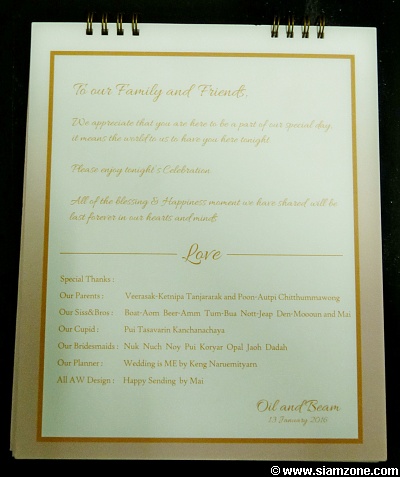 To our Family and Friends,
We appreciate that you are here to be a part of our special day,
it means the world to us to have you here tonight
Please enjoy tonight's Celebration
All of the blessing & Happiness moment we have shared will be
last forever in our hearts and minds
Love
Special Thanks :
Our Parents : Veerasak-Ketnipa Tanjararak and Poon-Autpi Chitthummawong
Our Siss&Bros : Boat-Aom Beer-Amm Tum-Bua Nott-Jeap Den-Moooun and Mai
Our Cupid : Pui Tasavarin Kanchanachaya
Our Bridesmaids : Nuk Nuch Noy Pui Koryar Opal Jaoh Dadah
Our Planner : Wedding is ME by Keng Naruemityarn
All AW Design : Happy Sending by Mai
Oil and Beam
13 January 2016
© www.siamzone.com